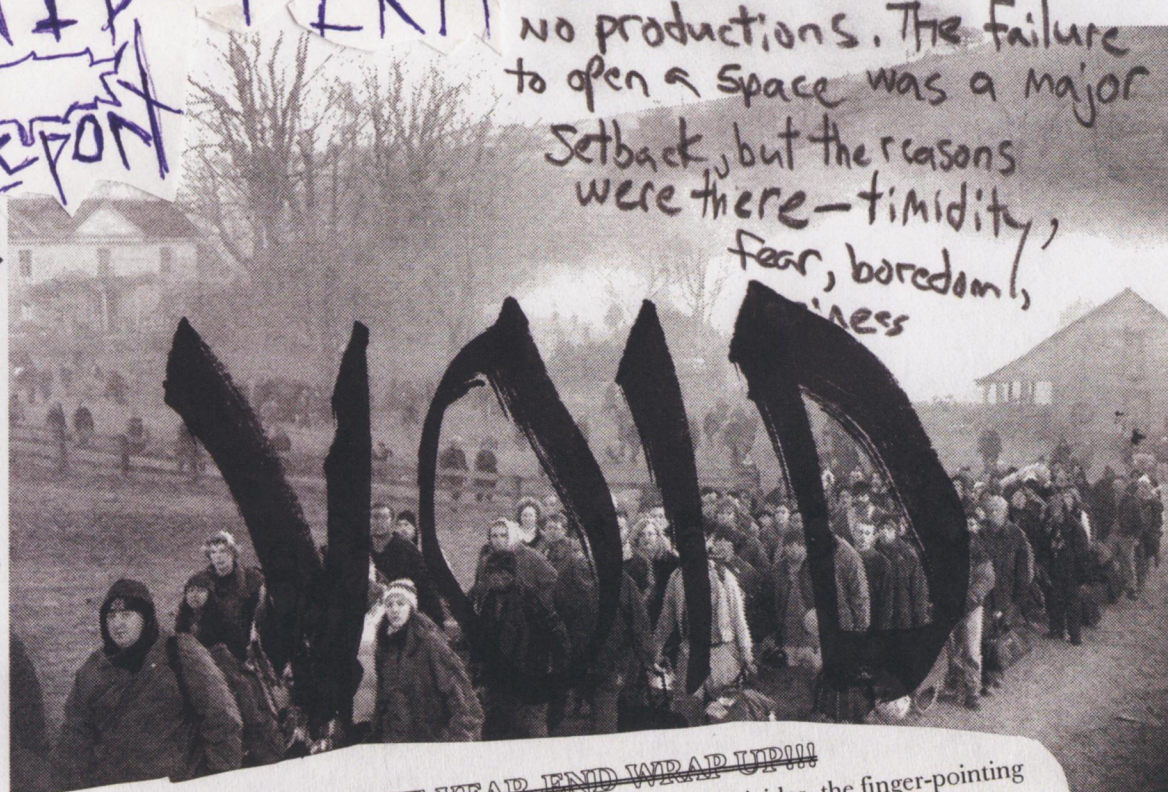 No productions. The failure
to open a space was a major
setback, but the reasons
were there – timidity,
fear, boredom,
VOID
YEAR END WRAP UP!!!
the finger-pointing